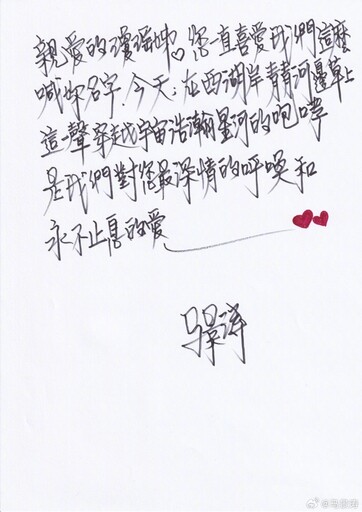 親愛的瓊瑤姊。您一直喜愛我們這麼
喊你名字.今天.在西湖岸青青河邊草上
這一聲穿越宇宙浩瀚星河的咆哮
是我們對您最深情的呼喚和
永不止息的愛
馬景濤
@马景涛